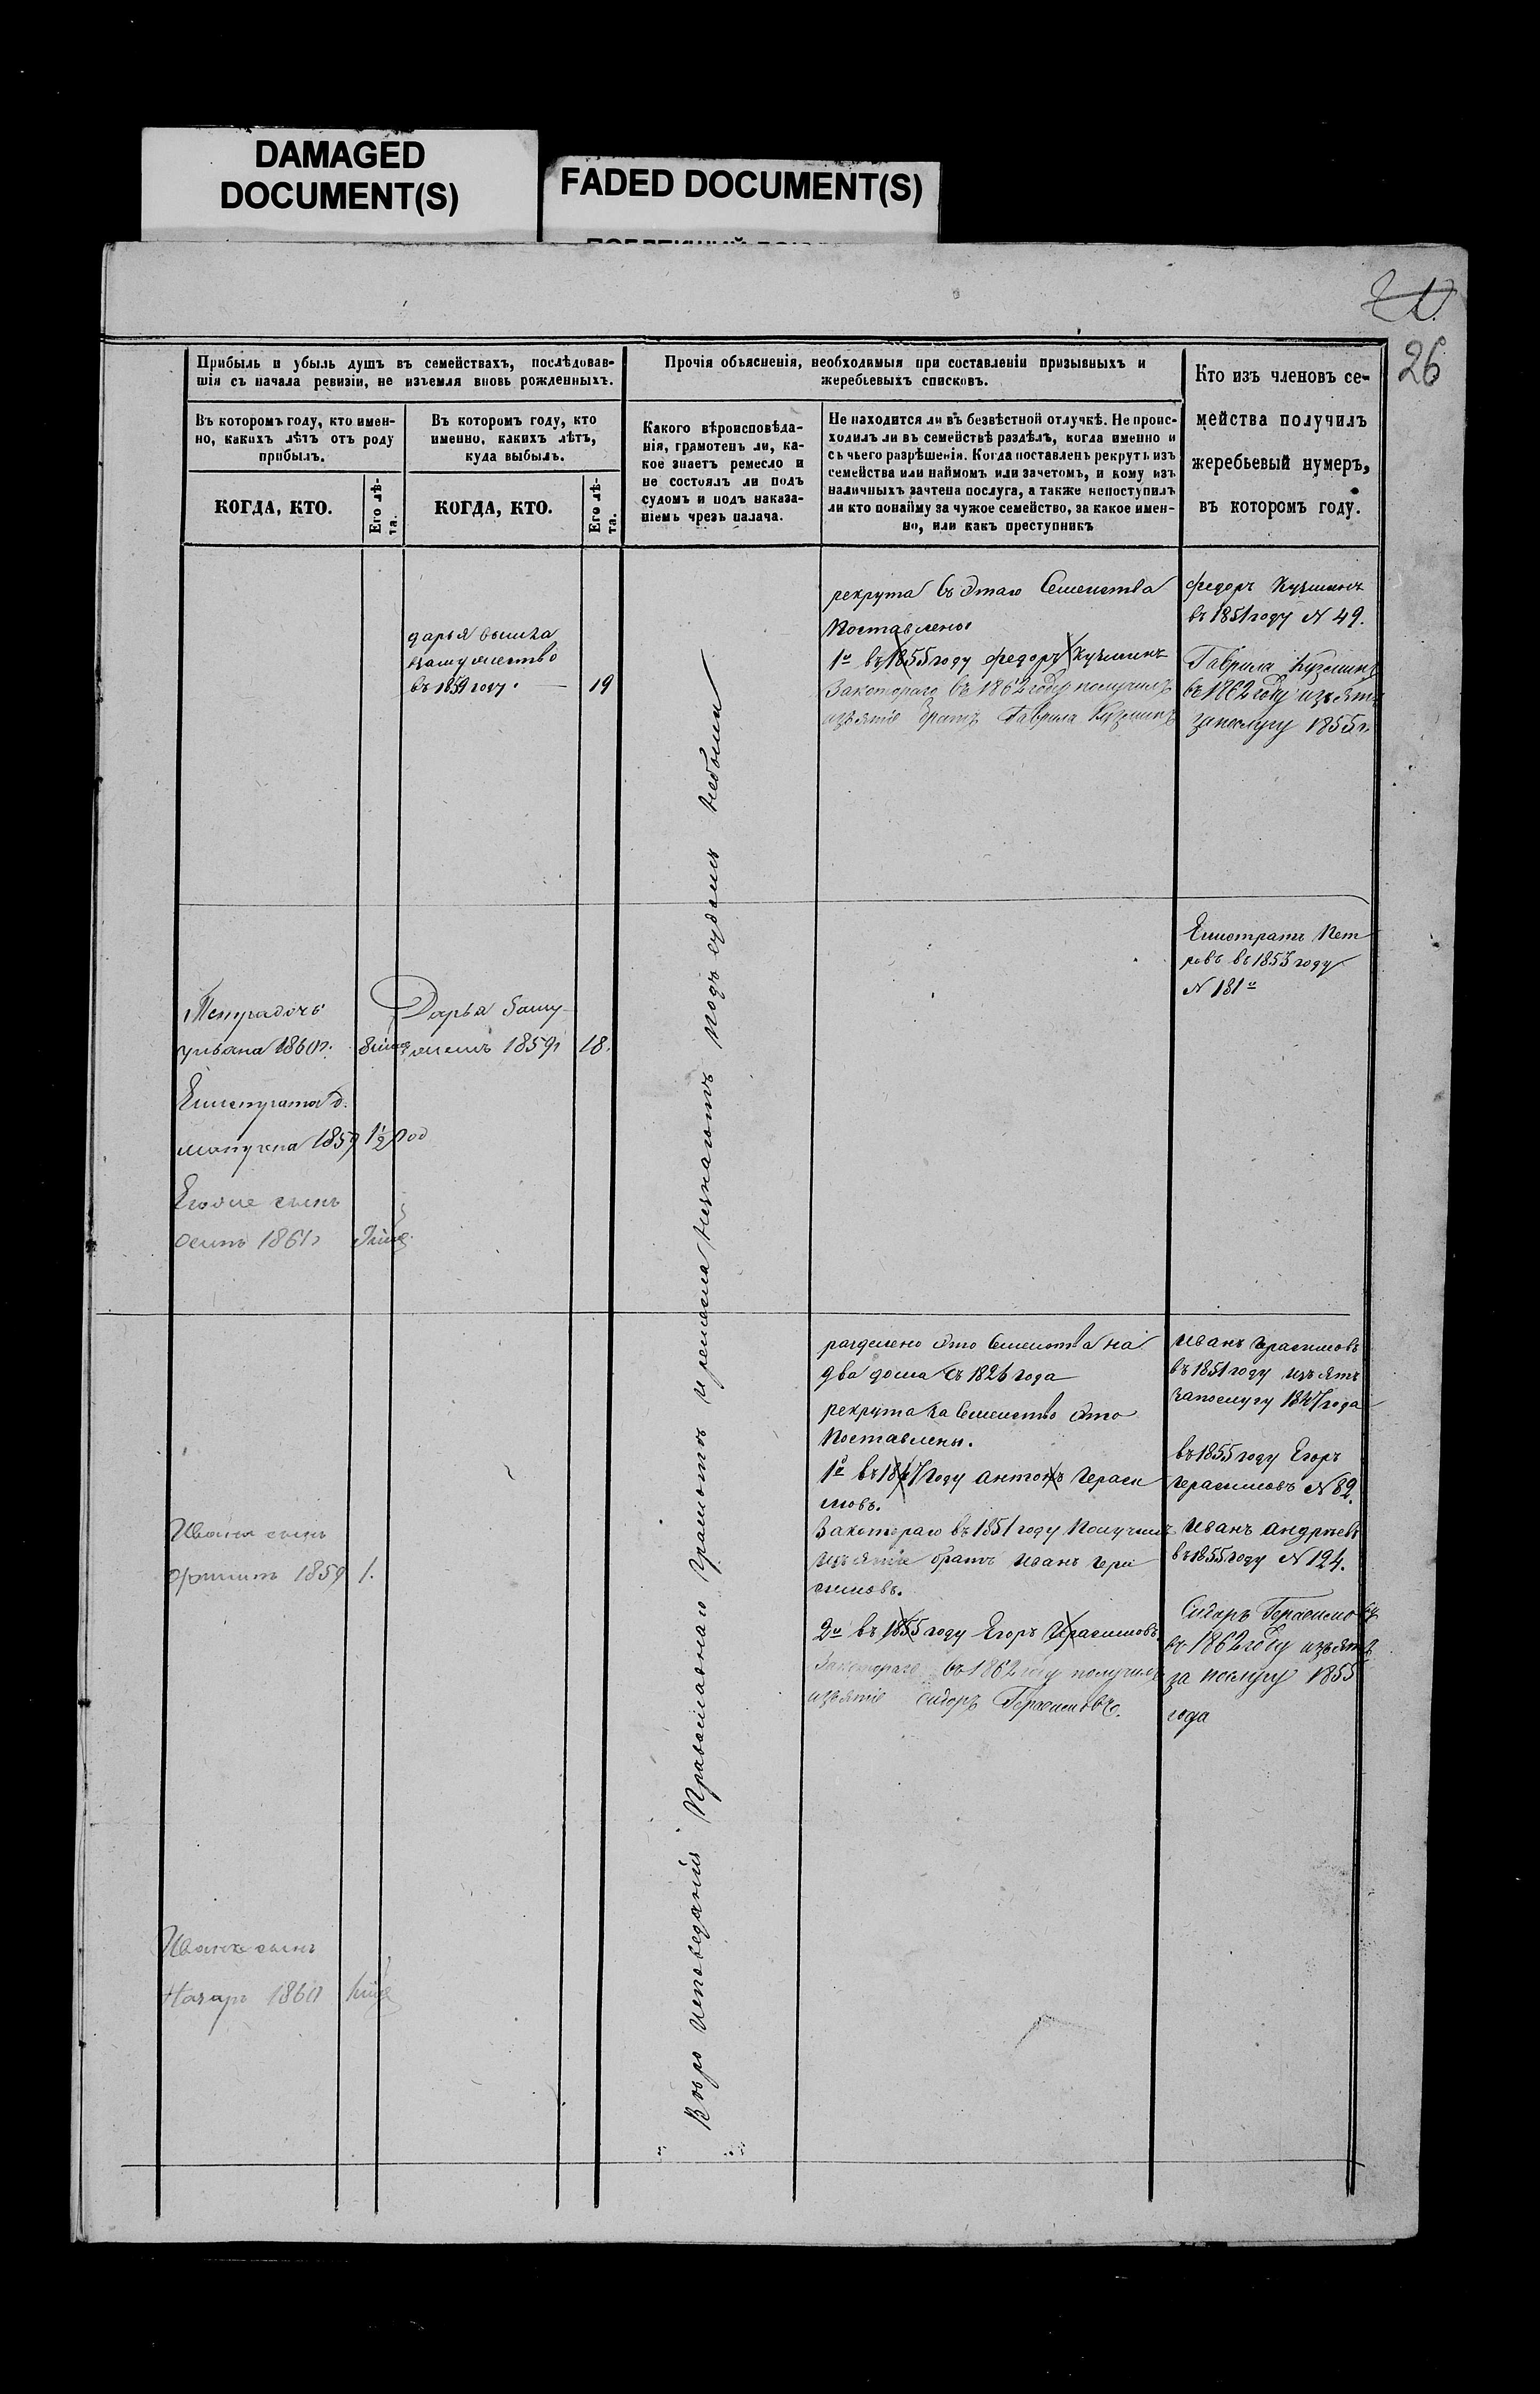 DAMAGED
DOCUMENT(S)
FADED DOCUMENT(S)
26
Прибыль и убыль душъ въ семействахъ, послѣдовав-
шія съ начала ревизіи, не изъемля вновь рожденныхъ.
Въ которомъ году, кто имен-
но, какихъ лѣтъ отъ роду
прибылъ.
КОГДА, КТО.
Его лѣ-
та.
Въ которомъ году, кто
именно, какихъ лѣтъ,
куда выбылъ.
КОГДА, КТО.
Его лѣ-
та.
Прочія объясненія, необходимыя при составленіи призывныхъ и
жеребьевыхъ списковъ.
Какого вѣроисповѣда-
нія, грамотенъ ли, ка-
кое знаетъ ремесло и
не состоялъ ли подъ
судомъ и подъ наказа-
ніемъ чрезъ палача.
Не находится ли въ безвѣстной отлучкѣ. Не проис-
ходилъ ли въ семействѣ раздѣлъ, когда именно и
съ чьего разрѣшенія. Когда поставленъ рекрутъ изъ
семейства или наймомъ или зачетомъ, и кому изъ
наличныхъ зачтена послуга, а также непоступилъ
ли кто понайму за чужое семейство, за какое имен-
но, или какъ преступникъ
Кто изъ членовъ се-
мейства получилъ
жеребьевый нумеръ,
въ которомъ году.
дарья вышла
взамужество
въ 1859 году. 19
рекрута съ Этаго Семейства
Поставлены
1й въ 1855 году федоръ Кузминъ
Закотораго въ 1862 году получилъ
изъятіе братъ Гаврила Кузминъ
федоръ Кузминъ
въ 1851 году N 49.
Гаврила Кузминъ
въ 1862 году изъятъ
запослугу 1855 г.
Елистратъ Пет
ровъ въ 1853 году
N 181й
Петра дочь
ульяна 1860 г.
Дарья Взаму
жемъ 1859 г 18.
Елистрата д.
1859 1½ год
Егоже сынъ
осипъ 1861 г
Вѣро исповеданія Православнаго Грамотѣ и ремесла незнаютъ подъ судомъ небыли
разделено Это Семейство на
два дома съ 1826 года
рекрута за Семейство Это
Поставлены.
1й въ 1847 году антонъ Гераси
мовъ.
Закотораго въ 1851 году Получилъ
изъятіе братъ иванъ Гера
симовъ.
2й въ 1855 году Егоръ Герасимовъ.
Закотораго въ 1862 году получилъ
изъятіе сидоръ Герасимовъ.
иванъ Герасимовъ
въ 1851 году изъятъ
запослугу 1847 года
въ 1855 году Егоръ
Герасимовъ N 82.
иванъ андреевъ
въ 1855 году N 124.
Сидоръ Герасимовъ
въ 1862 году изъятъ
за послугу 1855
года
Ивана сынъ
1859 1.
Ивана сынъ
Назаръ 1860